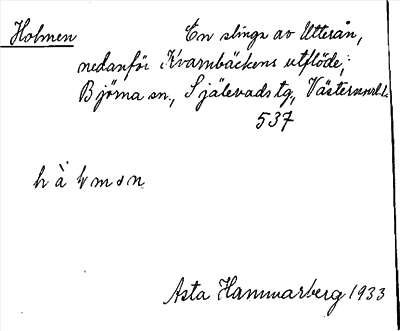 Holmen En slinga av Utterån,
nedanför Kvarnbäckens utflöde,
Björna sn., Själevads tg, Västernorrl.
537
Asta Hammarberg 1933